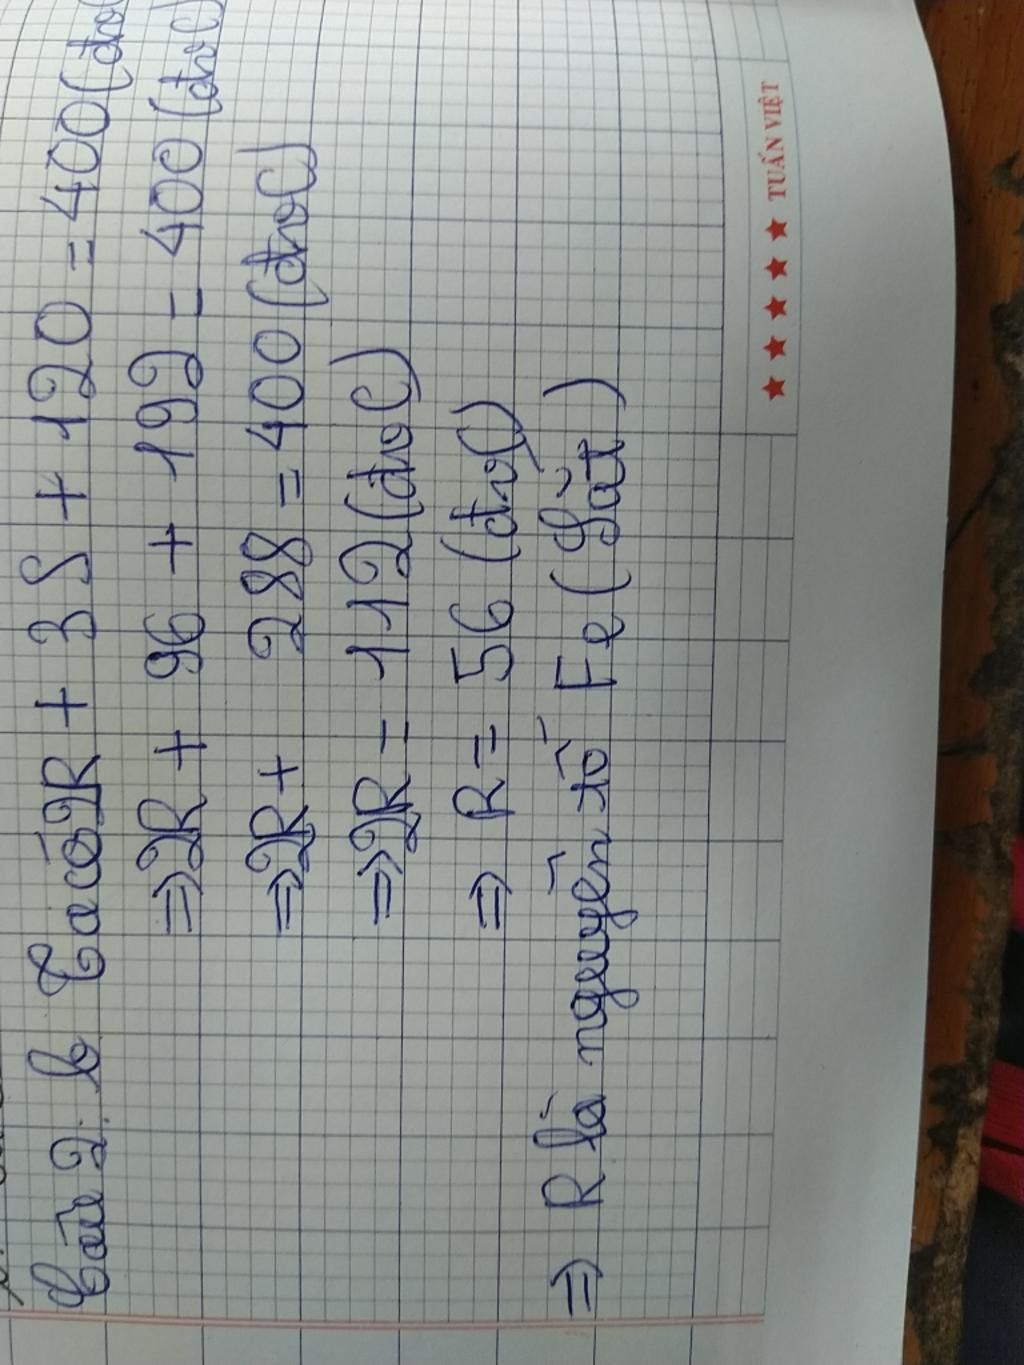 Câu 2: b Ta có 2R + 3S + 12O = 400 (đvC)
⇒ 2R + 96 + 192 = 400 (đvC)
⇒ 2R + 288 = 400 (đvC)
⇒ 2R = 112 (đvC)
⇒ R = 56 (đvC)
⇒ R là nguyên tố Fe (Sắt)
★★★★★ TUẤN VIỆT